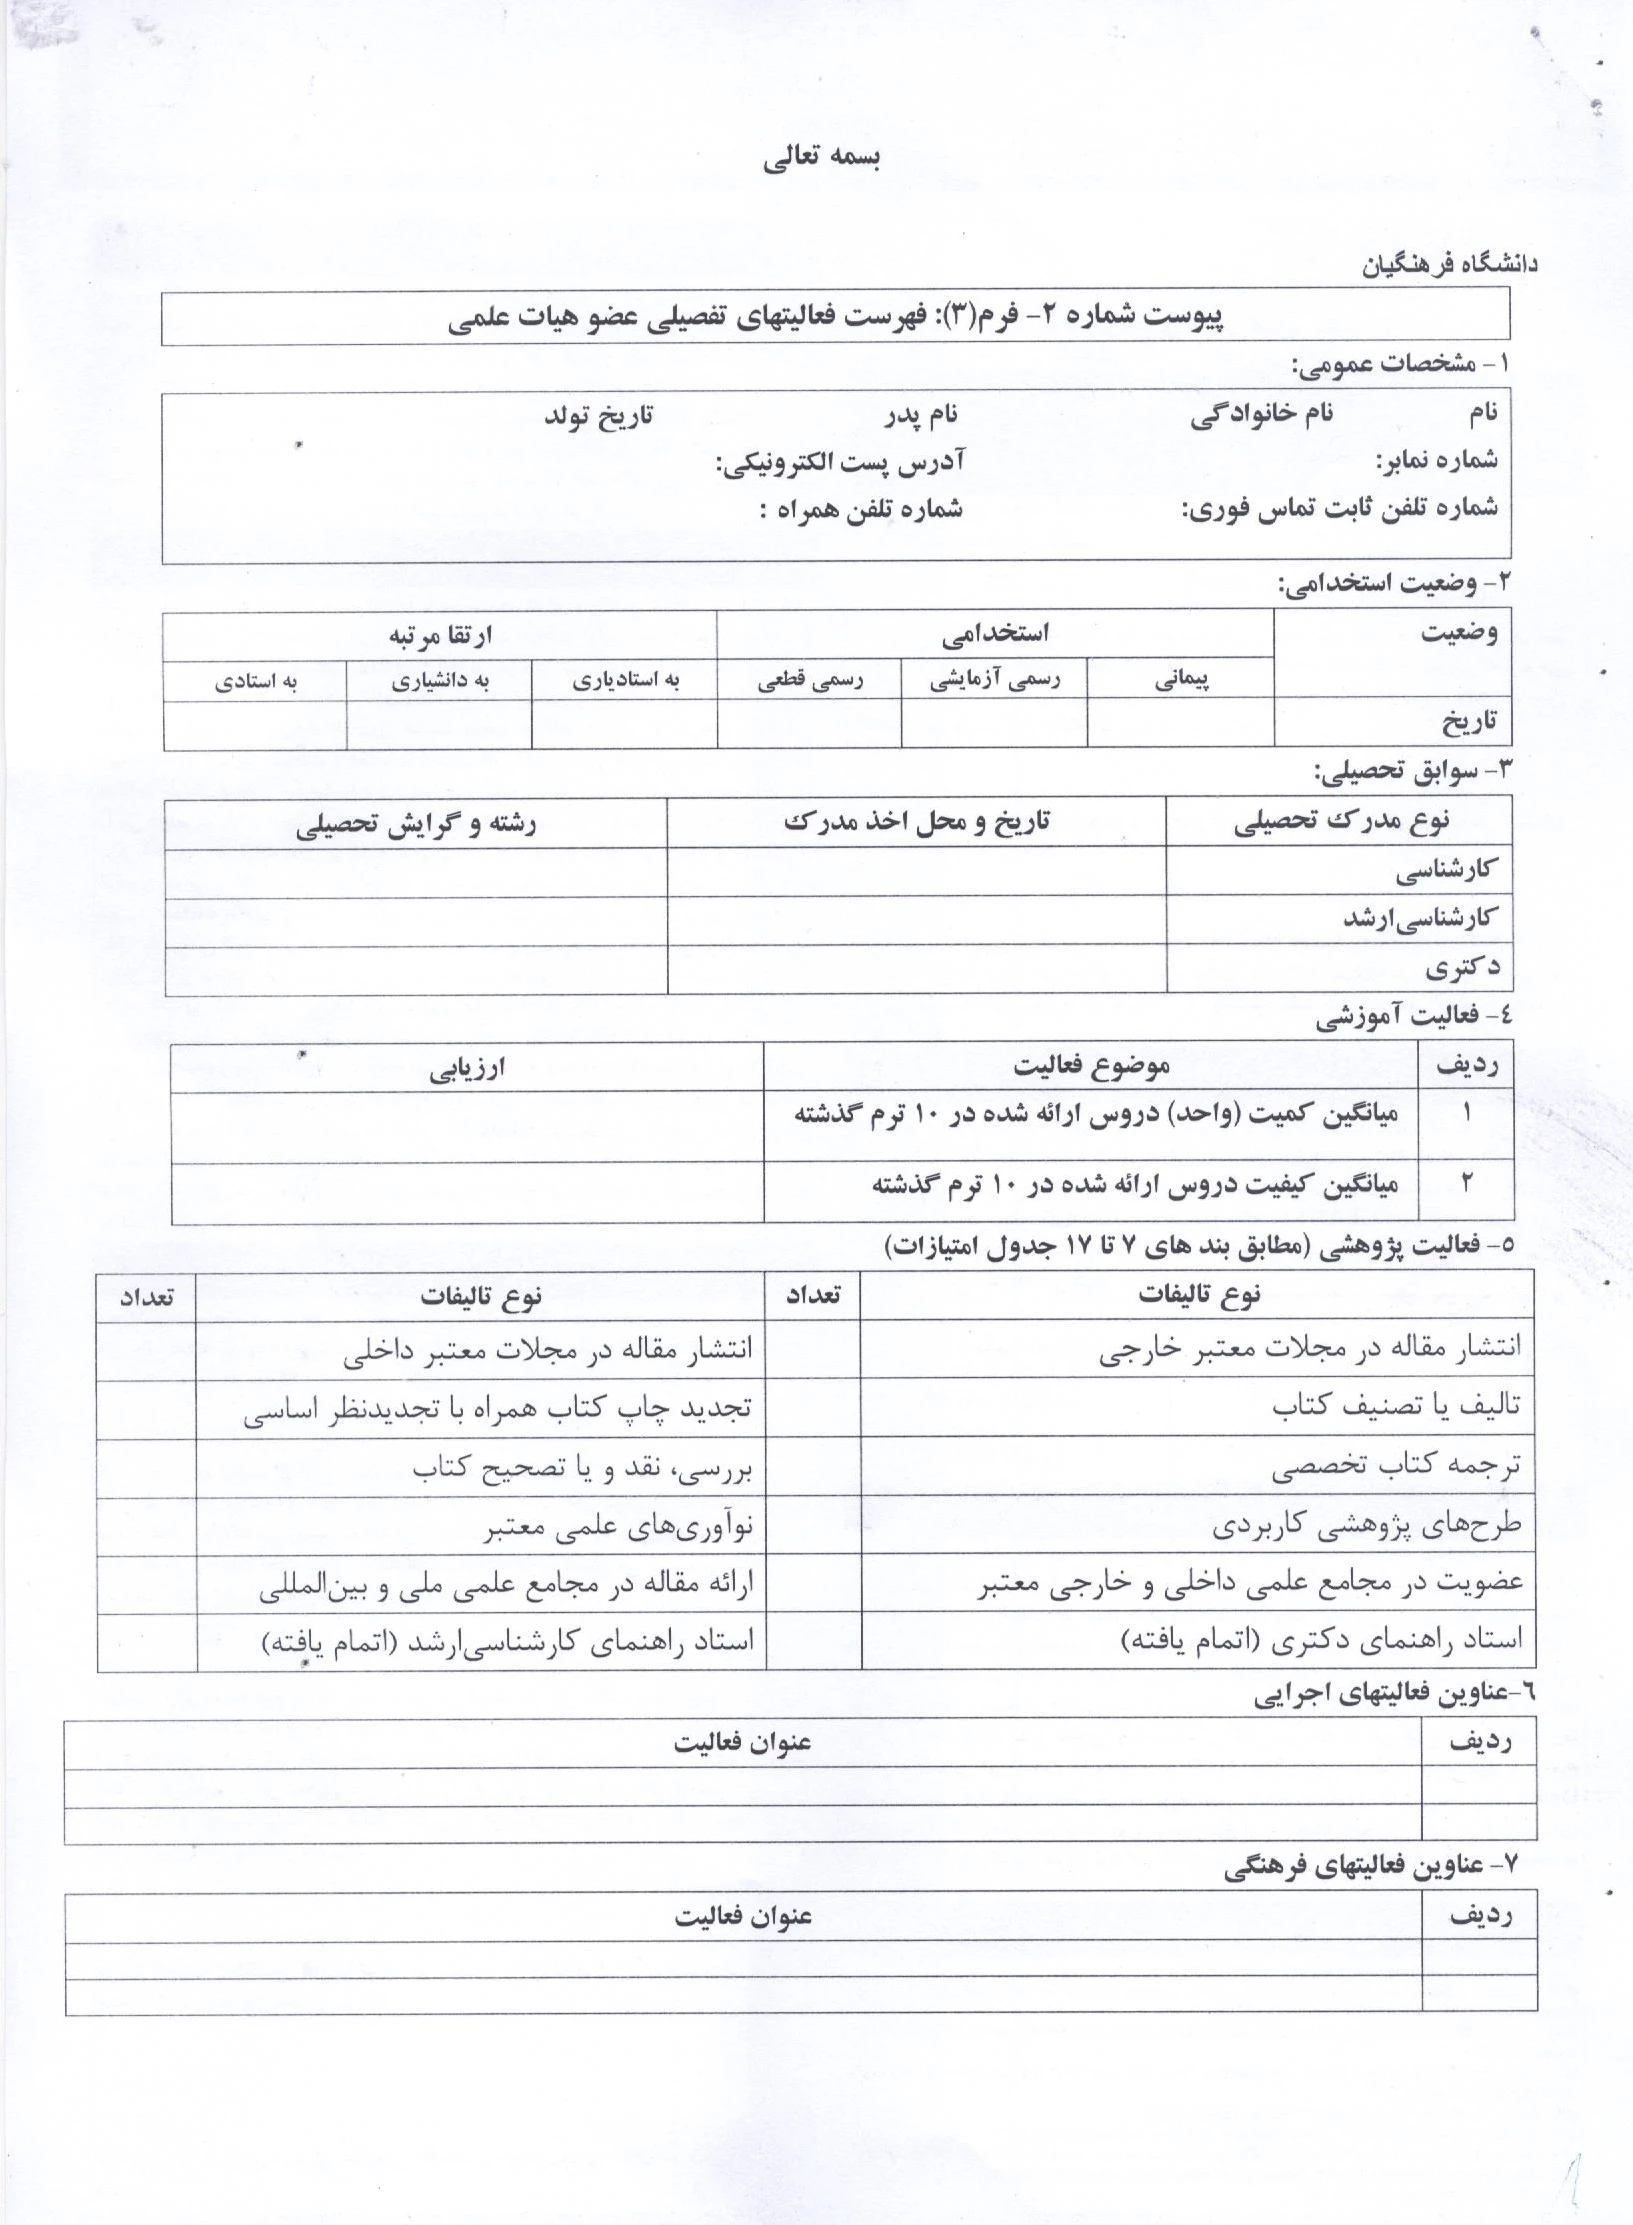 بسمه تعالی
دانشگاه فرهنگیان
پیوست شماره ۲- فرم(۳): فهرست فعالیتهای تفصیلی عضو هیات علمی
۱- مشخصات عمومی:
نام نام خانوادگی نام پدر تاریخ تولد
شماره نمابر: آدرس پست الکترونیکی:
شماره تلفن ثابت تماس فوری: شماره تلفن همراه :
۲- وضعیت استخدامی:
وضعیت استخدامی ارتقا مرتبه
پیمانی رسمی آزمایشی رسمی قطعی به استادیاری به دانشیاری به استادی
تاریخ
۳- سوابق تحصیلی:
نوع مدرک تحصیلی تاریخ و محل اخذ مدرک رشته و گرایش تحصیلی
کارشناسی
کارشناسی‌ارشد
دکتری
٤- فعالیت آموزشی
ردیف موضوع فعالیت ارزیابی
۱ میانگین کمیت (واحد) دروس ارائه شده در ۱۰ ترم گذشته
۲ میانگین کیفیت دروس ارائه شده در ۱۰ ترم گذشته
٥- فعالیت پژوهشی (مطابق بند های ۷ تا ۱۷ جدول امتیازات)
نوع تالیفات تعداد نوع تالیفات تعداد
انتشار مقاله در مجلات معتبر خارجی انتشار مقاله در مجلات معتبر داخلی
تالیف یا تصنیف کتاب تجدید چاپ کتاب همراه با تجدیدنظر اساسی
ترجمه کتاب تخصصی بررسی، نقد و یا تصحیح کتاب
طرح‌های پژوهشی کاربردی نوآوری‌های علمی معتبر
عضویت در مجامع علمی داخلی و خارجی معتبر ارائه مقاله در مجامع علمی ملی و بین‌المللی
استاد راهنمای دکتری (اتمام یافته) استاد راهنمای کارشناسی‌ارشد (اتمام یافته)
٦-عناوین فعالیتهای اجرایی
ردیف عنوان فعالیت
۷- عناوین فعالیتهای فرهنگی
ردیف عنوان فعالیت